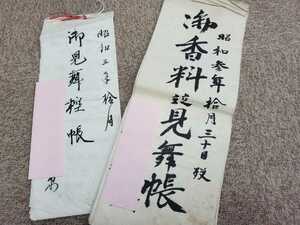 昭和三年拾月
御見舞控帳
昭和参年拾月三十日
御香料並見舞帳